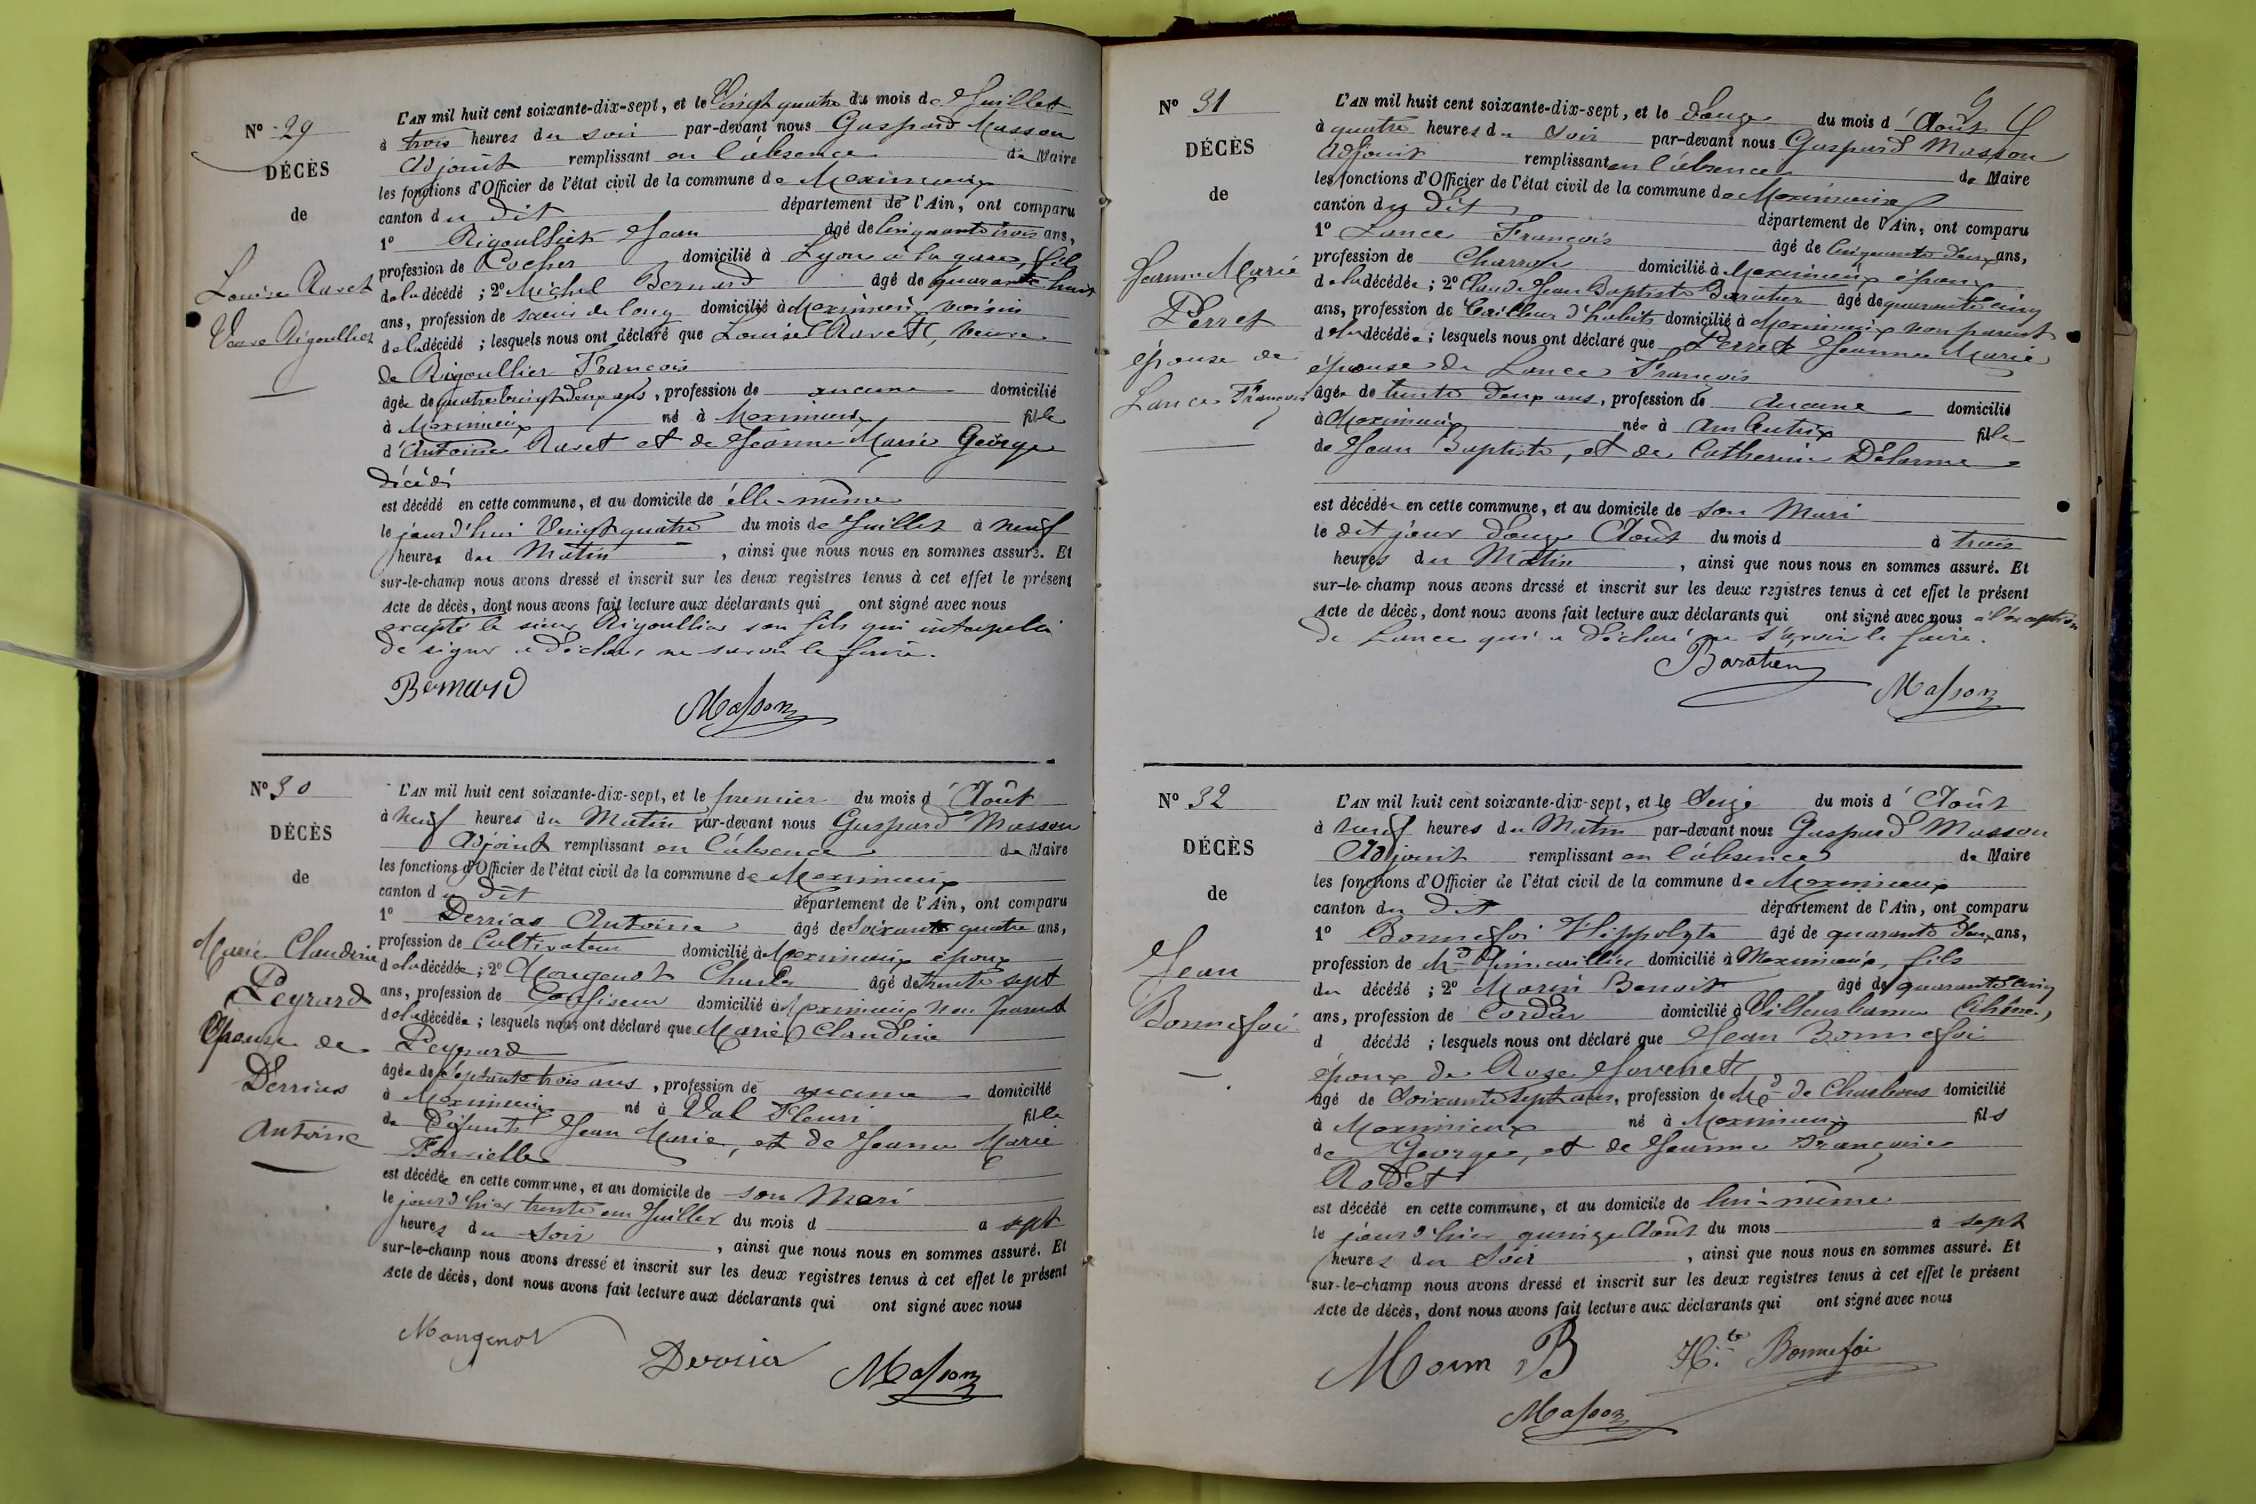 N° 29
DÉCÈS
de
Louise Ravet
Veuve Rigoullier
L'AN mil huit cent soixante-dix-sept, et le Vingt quatre du mois de Juillet
à trois heures du soir par-devant nous Gaspard Masson
Adjoint remplissant en l'absence de Maire
les fonctions d'Officier de l'état civil de la commune de Meximieux
canton du dit département de l'Ain, ont comparu
1° Rigoullier Jean âgé de Cinquante trois ans,
profession de Cocher domicilié à Lyon à la gare, fils
de la décédé ; 2° Michel Bernard âgé de quarante huit
ans, profession de scieur de long domicilié à Meximieux voisin
de la décédé ; lesquels nous ont déclaré que Louise Ravet, veuve
de Rigoullier François
âgée de quatre vingt deux ans, profession de aucune domicilié
à Meximieux né à Meximieux fille
d'Antoine Ravet et de Jeanne Marie George
décédés
est décédé en cette commune, et au domicile de elle-même
le jourd'hui Vingt quatre du mois de Juillet à neuf
heures du Matin, ainsi que nous nous en sommes assuré. Et
sur-le-champ nous avons dressé et inscrit sur les deux registres tenus à cet effet le présent
Acte de décès, dont nous avons fait lecture aux déclarants qui ont signé avec nous
excepté le sieur Rigoullier son fils qui interpellé
de signer a déclaré ne savoir le faire.
Bernard Masson
N° 30
DÉCÈS
de
Marie Claudine
Peyrard
Epouse de
Derrias
Antoine
L'AN mil huit cent soixante-dix-sept, et le premier du mois d'Août
à neuf heures du Matin par-devant nous Gaspard Masson
Adjoint remplissant en l'absence de Maire
les fonctions d'Officier de l'état civil de la commune de Meximieux
canton du dit département de l'Ain, ont comparu
1° Derrias Antoine âgé de Soixante quatre ans,
profession de Cultivateur domicilié à Meximieux époux
de la décédée ; 2° Mougenot Charles âgé de trente sept
ans, profession de Confiseur domicilié à Meximieux Non parent
de la décédée ; lesquels nous ont déclaré que Marie Claudine
Peyrard
âgée de septante trois ans, profession de aucune domicilié
à Meximieux né à Val Fleuri fille
de Défunts Jean Marie, et de Jeanne Marie
est décédée en cette commune, et au domicile de son Mari
le jour d'hier trente un Juillet du mois d à sept
heures du Soir, ainsi que nous nous en sommes assuré. Et
sur-le-champ nous avons dressé et inscrit sur les deux registres tenus à cet effet le présent
Acte de décès, dont nous avons fait lecture aux déclarants qui ont signé avec nous
Mougenot Masson
N° 31
DÉCÈS
de
Jeanne Marie
Perret
épouse de
Lance François
L'AN mil huit cent soixante-dix-sept, et le Douze du mois d'Août
à quatre heures du Soir par-devant nous Gaspard Masson
Adjoint remplissant en l'absence de Maire
les fonctions d'Officier de l'état civil de la commune de Meximieux
canton du dit département de l'Ain, ont comparu
1° Lance François âgé de Cinquante deux ans,
profession de Charron domicilié à Meximieux époux
de la décédée ; 2° Claude Jean Baptiste Baratier âgé de quarante cinq
ans, profession de Tailleur d'habits domicilié à Meximieux non parent
de la décédée ; lesquels nous ont déclaré que Perret Jeanne Marie
épouse de Lance François
âgée de trente deux ans, profession de Aucune domicilié
à Meximieux née à Ambutrix fille
de Jean Baptiste, et de Catherine Delorme
est décédée en cette commune, et au domicile de son Mari
le dit jour douze Août du mois d à trois
heures du Matin, ainsi que nous nous en sommes assuré. Et
sur-le-champ nous avons dressé et inscrit sur les deux registres tenus à cet effet le présent
Acte de décès, dont nous avons fait lecture aux déclarants qui ont signé avec nous à l'exception
de Lance qui a déclaré ne savoir le faire.
Baratier Masson
N° 32
DÉCÈS
de
Jean
Bonnefoi
L'AN mil huit cent soixante-dix-sept, et le Seize du mois d'Août
à neuf heures du Matin par-devant nous Gaspard Masson
Adjoint remplissant en l'absence de Maire
les fonctions d'Officier de l'état civil de la commune de Meximieux
canton du dit département de l'Ain, ont comparu
1° Bonnefoi Hippolyte âgé de quarante deux ans,
profession de Md Quincaillier domicilié à Meximieux, fils
du décédé ; 2° Morin Benoit âgé de quarante cinq
ans, profession de Cordier domicilié à Villeurbanne (Rhône)
d décédé ; lesquels nous ont déclaré que Jean Bonnefoi
époux de Rose Jovenet
âgé de Soixante sept ans, profession de Md de Charbons domicilié
à Meximieux né à Meximieux fils
de George, et de Jeanne Françoise
Rodet
est décédé en cette commune, et au domicile de lui-même
le jour d'hier quinze Août du mois à sept
heures du Soir, ainsi que nous nous en sommes assuré. Et
sur-le-champ nous avons dressé et inscrit sur les deux registres tenus à cet effet le présent
Acte de décès, dont nous avons fait lecture aux déclarants qui ont signé avec nous
Morin B Hte Bonnefoi
Masson